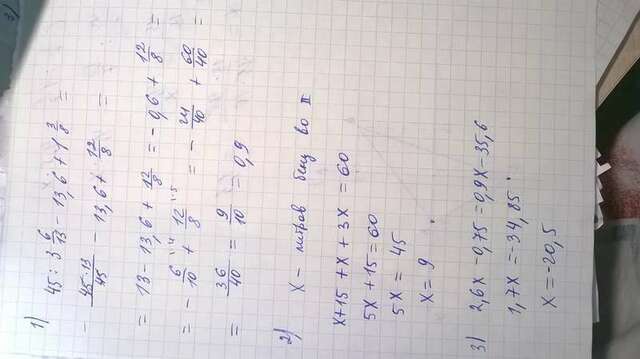 1) 45 : 3 6/13 - 13,6 + 1 3/8 =
- 45·13/45 - 13,6 + 12/8 =
= 13 - 13,6 + 12/8 = -0,6 + 12/8 =
= - 6/10 + 12/8 = - 24/40 + 60/40 =
= 36/40 = 9/10 = 0,9
2) X - литрав бенз во II
X+15 + X + 3X = 60
5X + 15 = 60
5X = 45
X = 9
3) 2,6X - 0,75 = 0,9X - 35,6
1,7X = -34,85
X = -20,5